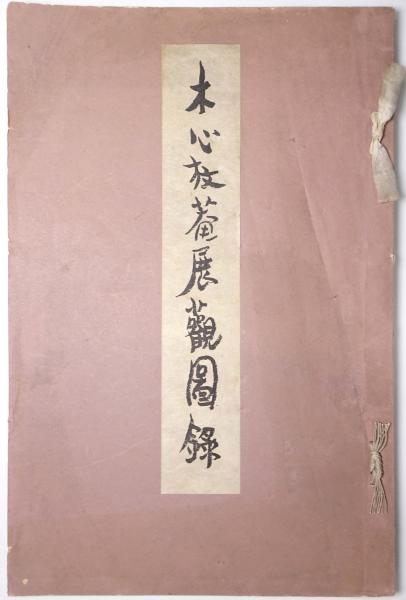 木心枝菴展觀圖錄